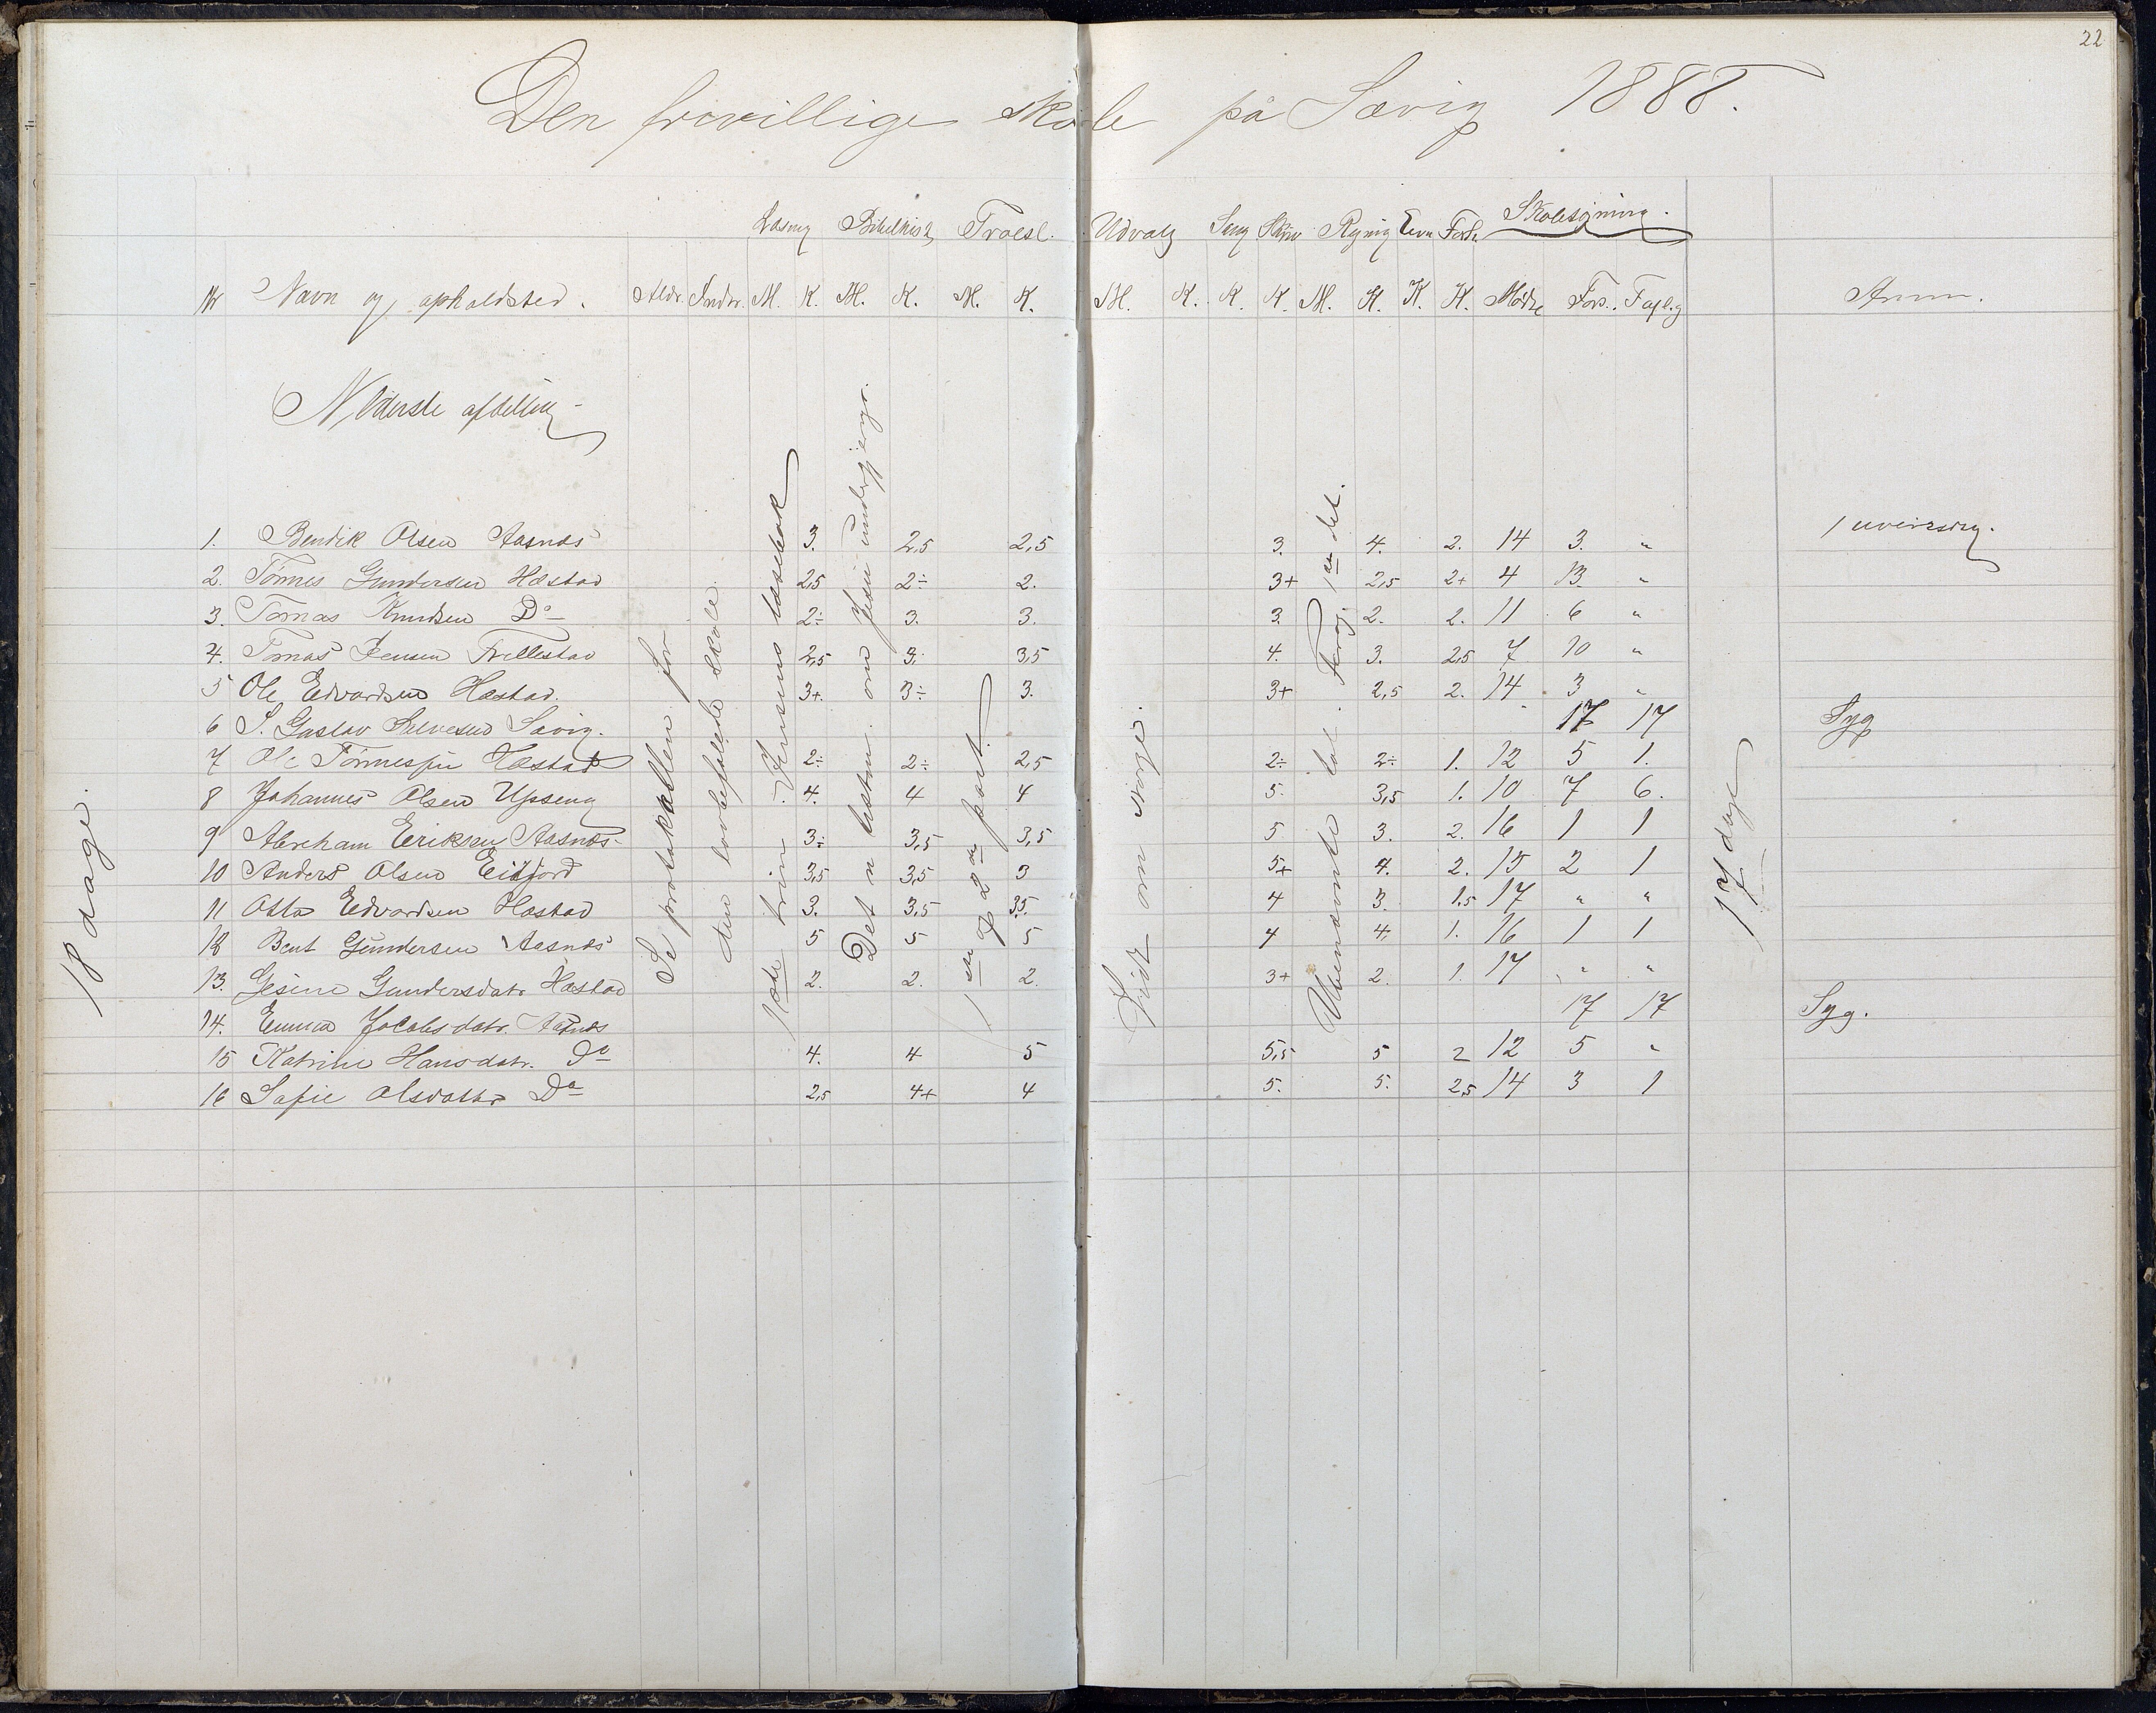 22
Den frivillige skole på Sævig 1888.
Læsning Bibelhist. Troesl. Udvalg Sang Skriv Regning Evn Forh. Skolesøgning.
Nr Navn og opholdsted. Alder. Indtr. M. K. M. K. M. K. M. K. K. K. M. K. K. K. Mødte Fors. Anm.
Nederste afdeling
1. Bendik Olsen Aasnæs 3. 2,5 2,5 3. 4. 2. 14 3. "
2. Tønnes Gundersen Hæstad 2,5 2÷ 2. 3+ 2,5 2+ 4 13 "
3. Tomas Knudsen Do 2÷ 3. 3. 3. 2. 2. 11 6 "
4. Tomas Jensen Trellestad 2,5 3. 3,5 4. 3. 2,5 7 10 "
5 Ole Edvardsen Hæstad. 3+. 3÷ 3. 3+ 2,5 2. 14 3 "
6 S. Gustav Salvesen Sævig. 17 17 Syg
7 Ole Tønnessen Hæstad 2÷ 2÷ 2,5 2÷ 2÷ 1. 12 5 1.
8 Johannes Olsen Upseng 4. 4 4 5. 3,5 1. 10 7 6.
9 Abraham Eriksen Aasnæs 3÷ 3,5 3,5 5 3. 2. 16 1 1
10 Anders Olsen Eitfjord 3,5 3,5 3 5+ 4. 2. 15 2 1
11 Otto Edvardsen Hæstad 3. 3,5 3,5. 4 3. 1,5 17 " "
12 Bent Gundersen Aasnæs 5 5 5 4 4. 1. 16 1 1
13. Gesine Gundersdatr Hæstad 2. 2. 2. 3+ 2. 1. 17 " "
14. Emma Jacobsdatr. Aasnæs 17 17 Syg.
15 Katrine Hansdatr. Do 4. 4 5 5,5 5 2 12 5 "
16 Sofie Olsdatter Do 2,5 4+ 4 5. 5. 2,5 14 3 1
18 dage.
Se protokollen for
den lovbefalede skole
1ste trin. Jensens læsebok
Det n. testam. om Jesu undergjerg.
1ste og 2den part.
Lidt om Norge.
Ubenævnte tal. 1ste del.
17 dage